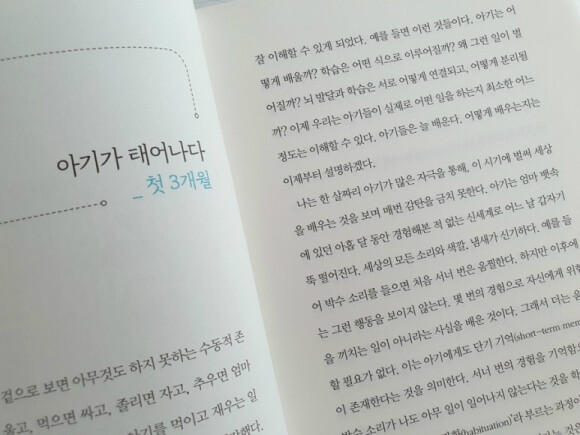 아기가 태어나다
_ 첫 3개월
겉으로 보면 아무것도 하지 못하는 수동적 존
울고, 먹으면 싸고, 졸리면 자고, 추우면 엄마
아기를 먹이고 재우는 일
잘 이해할 수 있게 되었다. 예를 들면 이런 것들이다. 아기는 어
떻게 배울까? 학습은 어떤 식으로 이루어질까? 왜 그런 일이 벌
어질까? 뇌 발달과 학습은 서로 어떻게 연결되고, 어떻게 분리될
까? 이제 우리는 아기들이 실제로 어떤 일을 하는지 최소한 어느
정도는 이해할 수 있다. 아기들은 늘 배운다. 어떻게 배우는지는
이제부터 설명하겠다.
나는 한 살짜리 아기가 많은 자극을 통해, 이 시기에 벌써 세상
을 배우는 것을 보며 매번 감탄을 금치 못한다. 아기는 엄마 뱃속
에 있던 아홉 달 동안 경험해본 적 없는 신세계로 어느 날 갑자기
뚝 떨어진다. 세상의 모든 소리와 색깔, 냄새가 신기하다. 예를 들
어 박수 소리를 들으면 처음 서너 번은 움찔한다. 하지만 이후에
는 그런 행동을 보이지 않는다. 몇 번의 경험으로 자신에게 위험
을 끼치는 일이 아니라는 사실을 배운 것이다. 그래서 더는 움
할 필요가 없다. 이는 아기에게도 단기 기억(short-term mem
이 존재한다는 것을 의미한다. 서너 번의 경험을 기억함으
박수 소리가 나도 아무 일이 일어나지 않는다는 것을 학
(habituation)'라 부르는 과정이